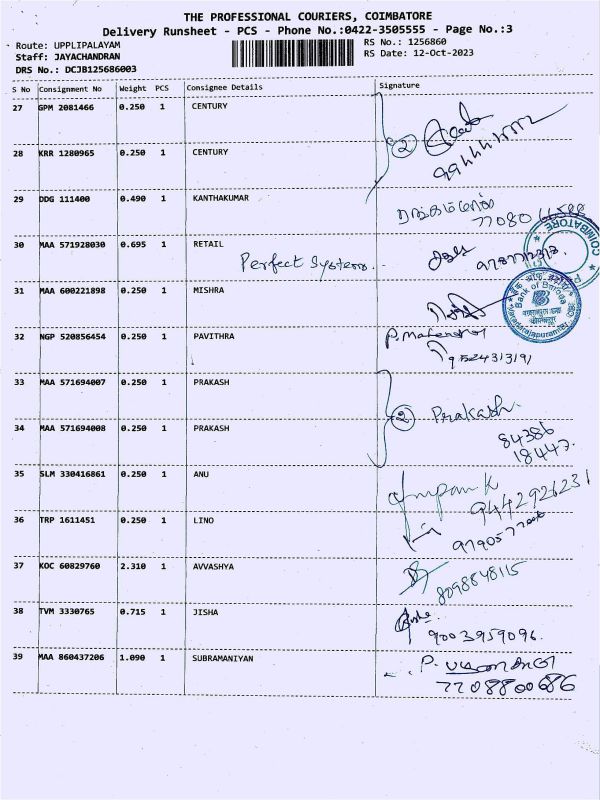 THE PROFESSIONAL COURIERS, COIMBATORE
Delivery Runsheet - PCS - Phone No.:0422-3505555 - Page No.:3
Route: UPPLIPALAYAM
RS No.: 1256860
Staff: JAYACHANDRAN
RS Date: 12-Oct-2023
DRS No.: DCJB125686003
S No Consignment No Weight PCS Consignee Details Signature
27 GPM 2081466 0.250 1 CENTURY
2
28 KRR 1280965 0.250 1 CENTURY
29 DDG 111400 0.490 1 KANTHAKUMAR
77080
COIMBATORE
30 MAA 571928030 0.695 1 RETAIL
Perfect Systems
31 MAA 600221898 0.250 1 MISHRA
Bank of Baroda
32 NGP 520856454 0.250 1 PAVITHRA
9524313191
33 MAA 571694007 0.250 1 PRAKASH
2 Prakash
34 MAA 571694008 0.250 1 PRAKASH
84386
18447
35 SLM 330416861 0.250 1 ANU
9442926231
36 TRP 1611451 0.250 1 LINO
37 KOC 60829760 2.310 1 AVVASHYA
8098848115
38 TVM 3330765 0.715 1 JISHA
9003959096
39 MAA 860437206 1.090 1 SUBRAMANIYAN
7708800686